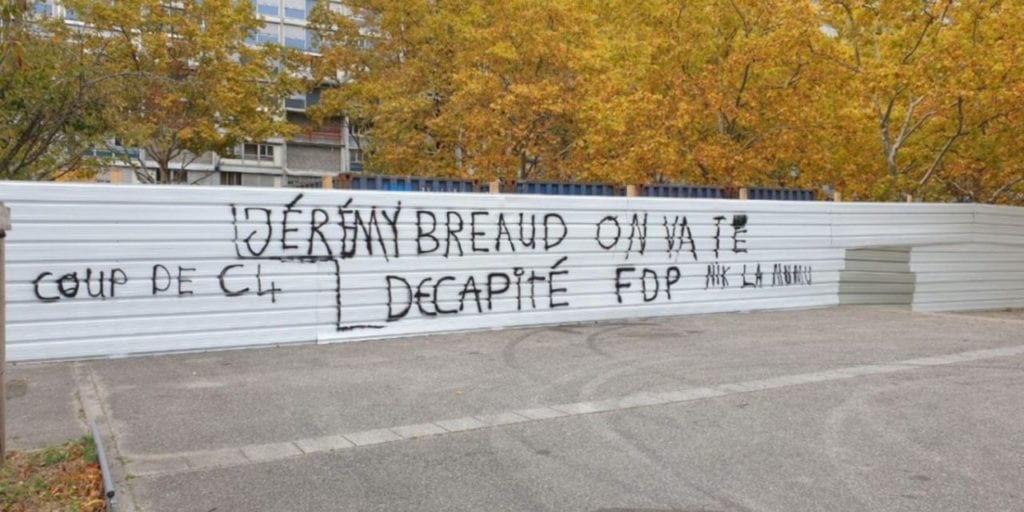 JÉRÉMY BREAUD ON VA TE
DECAPITÉ FDP NIK LA MUMU
COUP DE C4